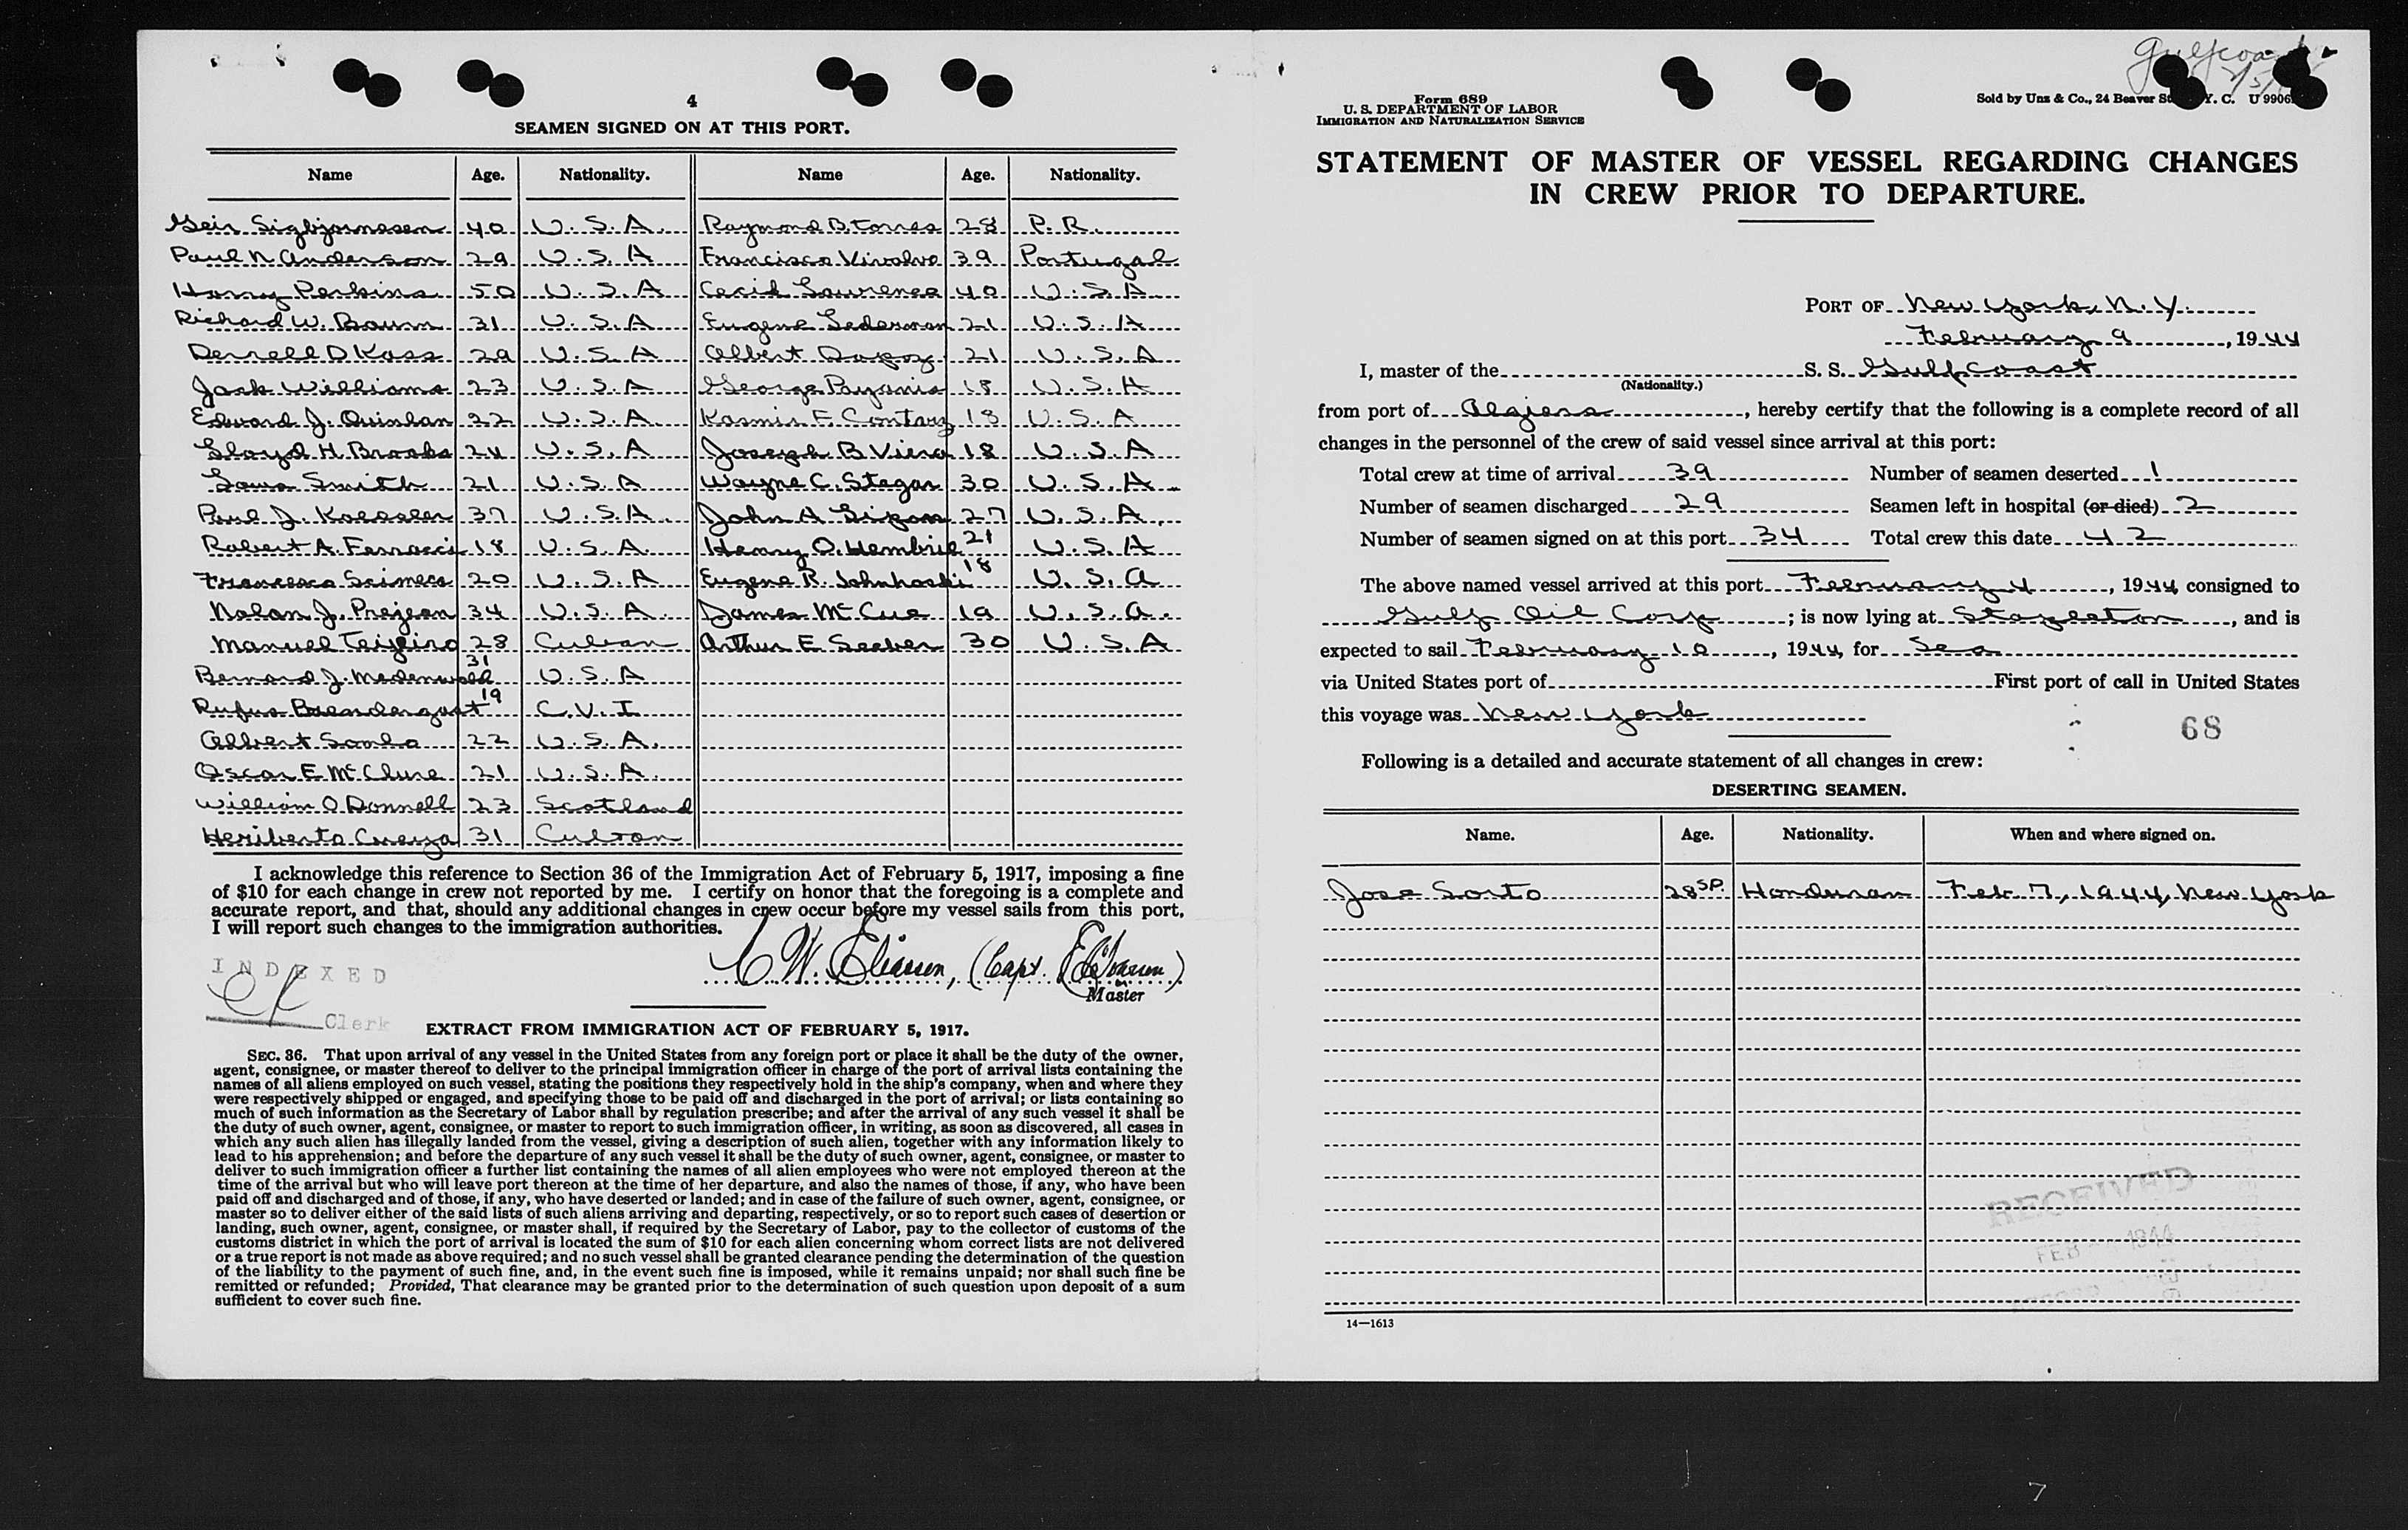 4
SEAMEN SIGNED ON AT THIS PORT.
Name Age. Nationality. Name Age. Nationality.
Geir Sigbjornesen 40 U.S.A. Raymond B. Torres 28 P.R.
Paul N Anderson 29 U.S.A Francisco 39 Portugal
Harry Perkins 50 U.S.A Cecil Lawrence 40 U.S.A
Richard W. 31 U.S.A Eugene Lederman 21 U.S.A
Derrell D Kass 29 U.S.A Albert 21 U.S.A
Jack Williams 23 U.S.A George 18 U.S.A
Edward J. Quinlan 22 U.S.A F. 18 U.S.A
Lloyd H. Brooks 24 U.S.A Joseph B Viera 18 U.S.A
Smith 21 U.S.A Wayne C. Stegar 30 U.S.A
Paul J. Koessler 37 U.S.A. John A 27 U.S.A.
Robert A. 18 U.S.A. Henry O. Hembrie 21 U.S.A
Francesco Scimeca 20 U.S.A Eugene R. 18 U.S.A
Nolan J. Prejean 34 U.S.A. James McCue 19 U.S.A.
Manuel Teijeiro 28 Cuban Arthur E Seeber 30 U.S.A
Bernard J. 31 U.S.A
Rufus 19 C.V.I
Albert 22 U.S.A.
Oscar E McClure 21 U.S.A.
William O Donnell 23 Scotland
Heriberto Cueya 31 Cuban
I acknowledge this reference to Section 36 of the Immigration Act of February 5, 1917, imposing a fine
of $10 for each change in crew not reported by me. I certify on honor that the foregoing is a complete and
accurate report, and that, should any additional changes in crew occur before my vessel sails from this port,
I will report such changes to the immigration authorities.
W. Eliassen, (Capt. Eliassen)
Master
INDEXED
Clerk
EXTRACT FROM IMMIGRATION ACT OF FEBRUARY 5, 1917.
SEC. 36. That upon arrival of any vessel in the United States from any foreign port or place it shall be the duty of the owner,
agent, consignee, or master thereof to deliver to the principal immigration officer in charge of the port of arrival lists containing the
names of all aliens employed on such vessel, stating the positions they respectively hold in the ship's company, when and where they
were respectively shipped or engaged, and specifying those to be paid off and discharged in the port of arrival; or lists containing so
much of such information as the Secretary of Labor shall by regulation prescribe; and after the arrival of any such vessel it shall be
the duty of such owner, agent, consignee, or master to report to such immigration officer, in writing, as soon as discovered, all cases in
which any such alien has illegally landed from the vessel, giving a description of such alien, together with any information likely to
lead to his apprehension; and before the departure of any such vessel it shall be the duty of such owner, agent, consignee, or master to
deliver to such immigration officer a further list containing the names of all alien employees who were not employed thereon at the
time of the arrival but who will leave port thereon at the time of her departure, and also the names of those, if any, who have been
paid off and discharged and of those, if any, who have deserted or landed; and in case of the failure of such owner, agent, consignee, or
master so to deliver either of the said lists of such aliens arriving and departing, respectively, or so to report such cases of desertion or
landing, such owner, agent, consignee, or master shall, if required by the Secretary of Labor, pay to the collector of customs of the
customs district in which the port of arrival is located the sum of $10 for each alien concerning whom correct lists are not delivered
or a true report is not made as above required; and no such vessel shall be granted clearance pending the determination of the question
of the liability to the payment of such fine, and, in the event such fine is imposed, while it remains unpaid; nor shall such fine be
remitted or refunded; Provided, That clearance may be granted prior to the determination of such question upon deposit of a sum
sufficient to cover such fine.
Form 689
U. S. DEPARTMENT OF LABOR
IMMIGRATION AND NATURALIZATION SERVICE
Sold by Unz & Co., 24 Beaver St Y. C. U 9906
STATEMENT OF MASTER OF VESSEL REGARDING CHANGES
IN CREW PRIOR TO DEPARTURE.
PORT OF New York, N.Y.
February 9, 1944
I, master of the S. S. Gulfcoast
(Nationality.)
from port of Algiers, hereby certify that the following is a complete record of all
changes in the personnel of the crew of said vessel since arrival at this port:
Total crew at time of arrival 39 Number of seamen deserted 1
Number of seamen discharged 29 Seamen left in hospital (or died) 2
Number of seamen signed on at this port 34 Total crew this date 42
The above named vessel arrived at this port February 4, 1944, consigned to
Gulf Oil Corp; is now lying at Stapleton, and is
expected to sail February 10, 1944, for Sea
via United States port of First port of call in United States
this voyage was New York
68
Following is a detailed and accurate statement of all changes in crew:
DESERTING SEAMEN.
Name. Age. Nationality. When and where signed on.
Jose Sorto 28 SP. Honduran Feb. 7, 1944, New York
RECEIVED
FEB 1944
14—1613